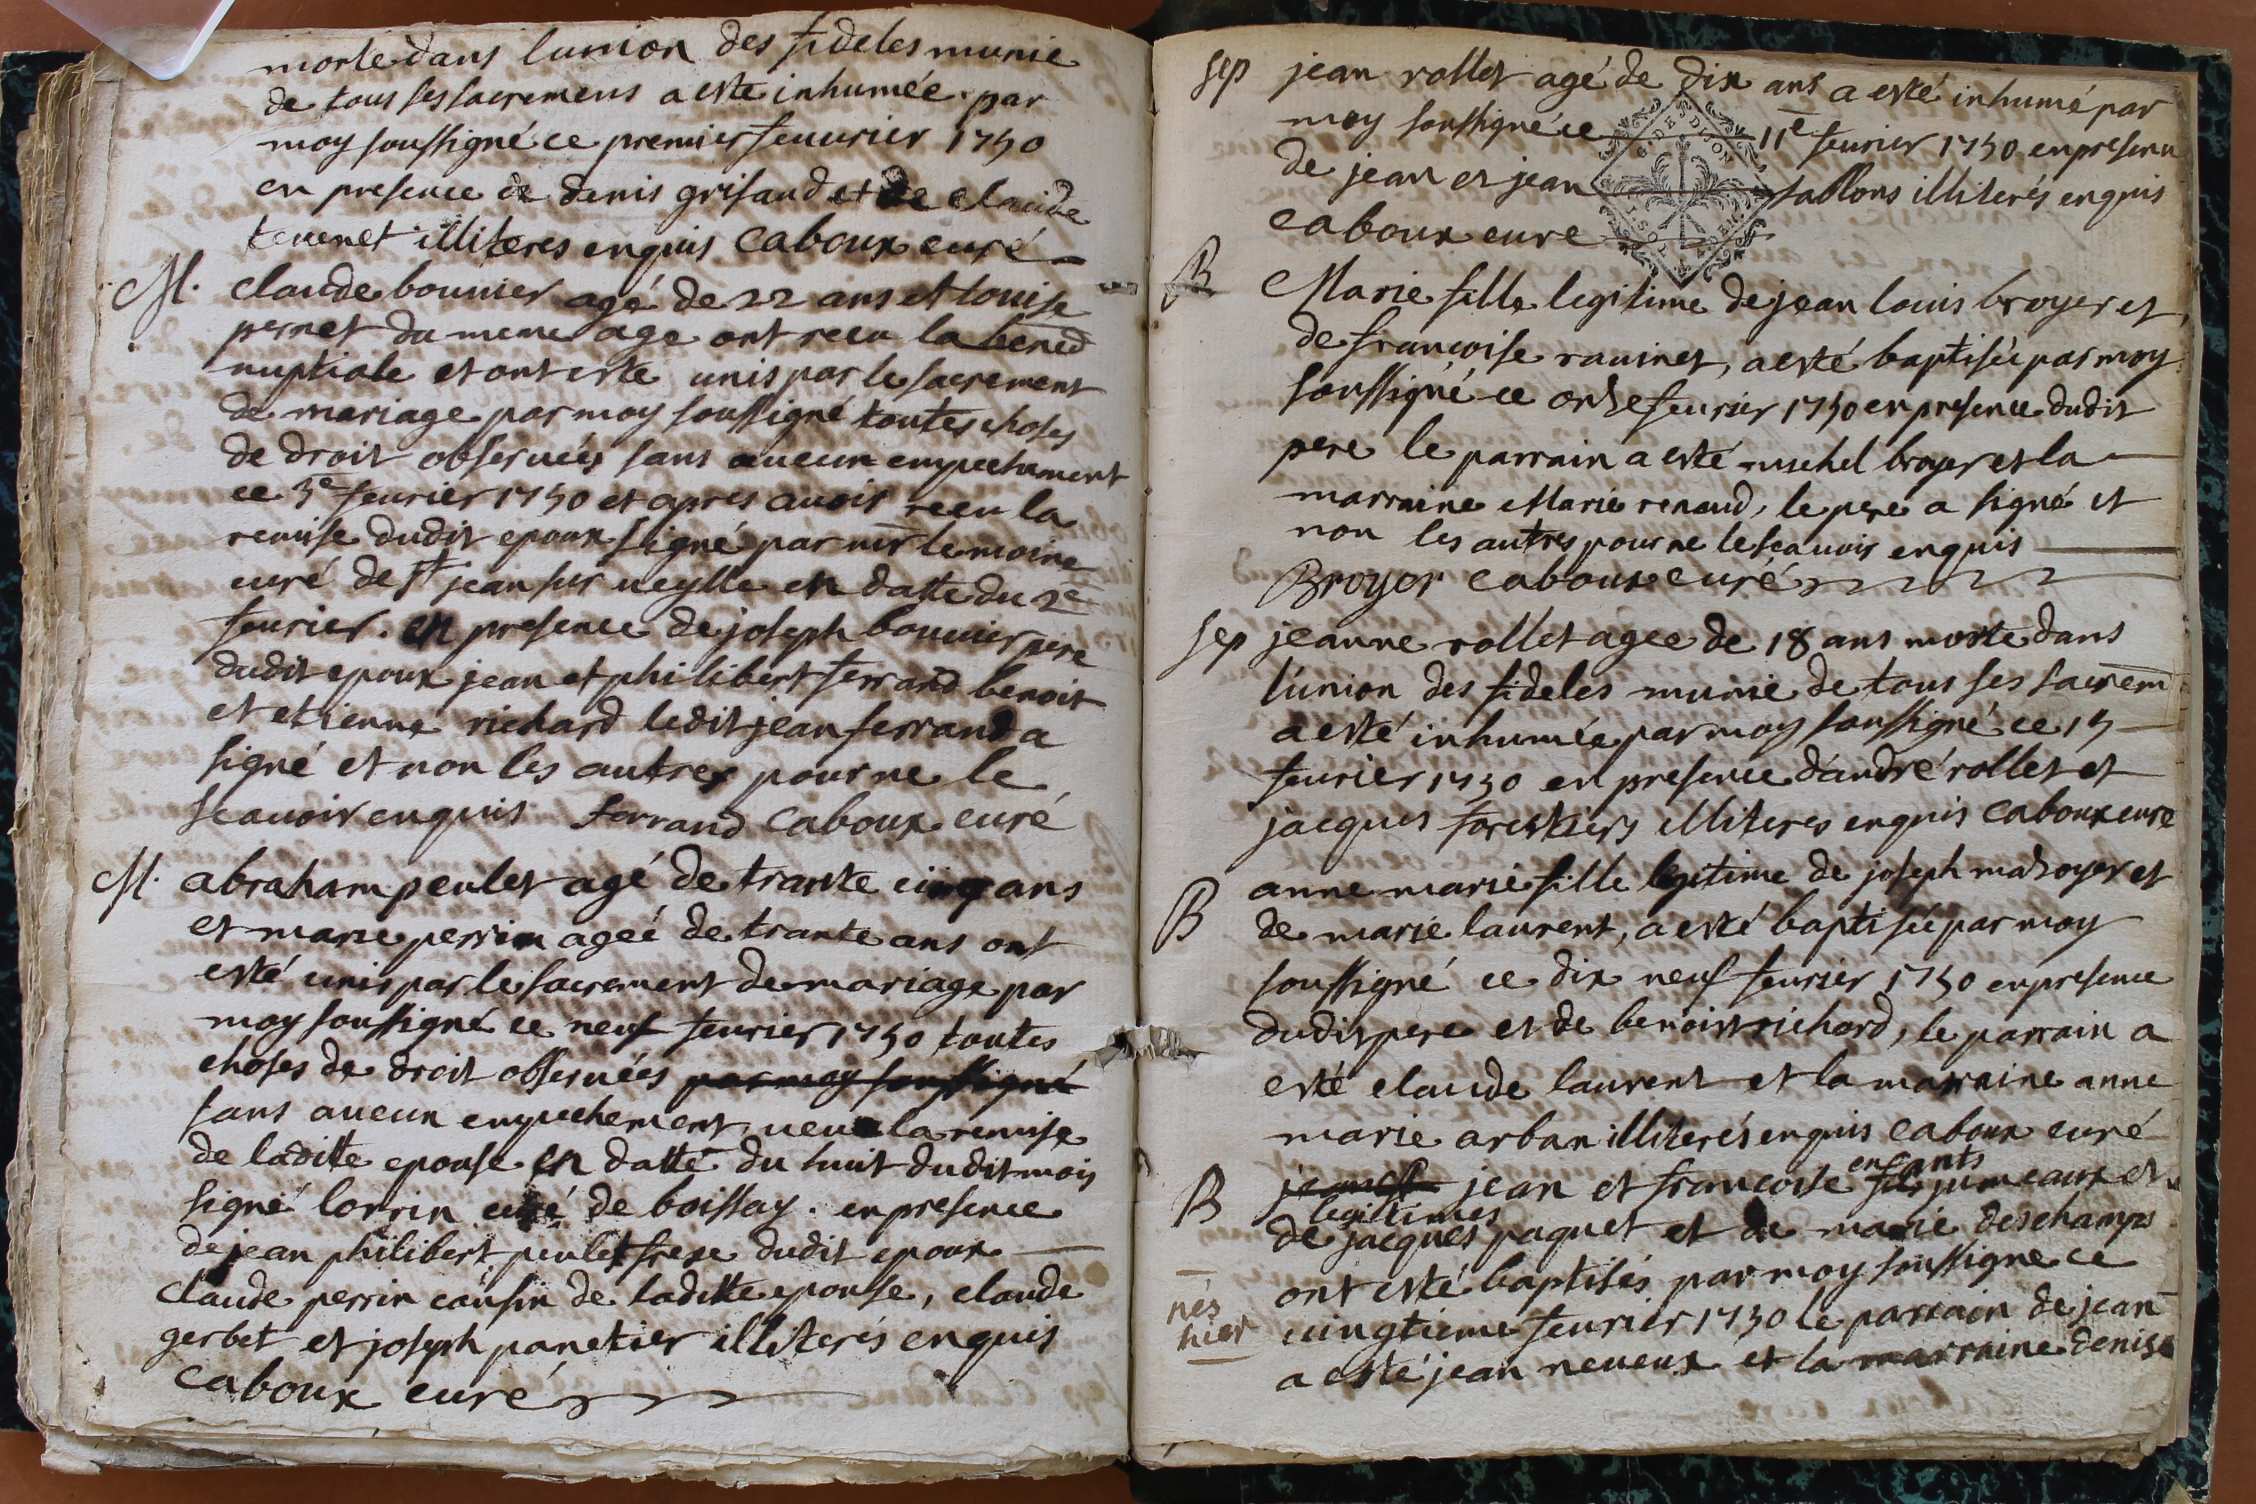 morte dans lunion des fideles munie
de tous ses sacremens a esté inhumée par
moy soussigné ce premier feuurier 1750
en presence de denis grisaud et de claude
teuenet illiteres enquis caboux curé
M. claude bouuier agé de 22 ans et louise
pernet du meme age ont receu la bened
nuptiale et ont esté unis par le sacrement
de mariage par moy soussigné toutes choses
de droit obseruées sans aucun empechement
ce 3e feurier 1750 et apres auoir receu la
remise dudit epoux signé par mr lemoine
curé de st jean sur ueylle en datte du 2e
feurier. en presence de joseph bouuier pere
dudit epoux jean et philibert ferrand benoit
et etienne richard ledit jean ferrand a
signé et non les autres pour ne le
scauoir enquis ferrand caboux curé
M. abraham peulet agé de trante cinq ans
et marie perrin ageé de trante ans ont
esté unis par le sacrement de mariage par
moy soussigné ce neuf feurier 1750 toutes
choses de droit obseruées par moy soussigné
sans aucun empechement, ueu la remise
de ladite epouse en datte du huit dudit mois
signé lorrin curé de boissay. en presence
de jean philibert peulet frere dudit epoux
claude perrin cousin de laditte epouse, claude
gerbet et joseph panetier illiterés enquis
caboux curé
sep jean rollet agé de dix ans a esté inhumé par
moy soussigné ce 11e feurier 1750 en presence
de jean et jean sablons illiterés enquis
caboux cure
G. DE DIJON
B Marie fille legitime de jean louis broyer et
de francoise rauinet, a esté baptisée par moy
soussigné ce onze feurier 1750 en presence dudit
pere le parrain a esté michel broyer et la
marraine Marie renaud, le pere a signé et
non les autres pour ne le scauoir enquis
Broyer caboux curé
sep jeanne rollet agee de 18 ans morte dans
l'union des fideles munie de tous ses sacrem
a esté inhumée par moy soussigné ce 15
feurier 1750 en presence d'andré rollet et
jacques forestiers illiteres enquis caboux cure
B anne marie fille legitime de joseph mazoyer et
de marie laurent, a esté baptisée par moy
soussigné ce dix neuf feurier 1750 en presence
dudit pere et de benoist richard, le parrain a
esté claude laurent et la marraine anne
marie arban illiterés enquis caboux curé
B jean et francoise enfants jumeaux et
legitimes
de jacques paquet et de marie deschamps
ont esté baptisés par moy soussigne ce
nés
hier
uingtieme feurier 1750 le parrain de jean
a esté jean neueux et la marraine denise